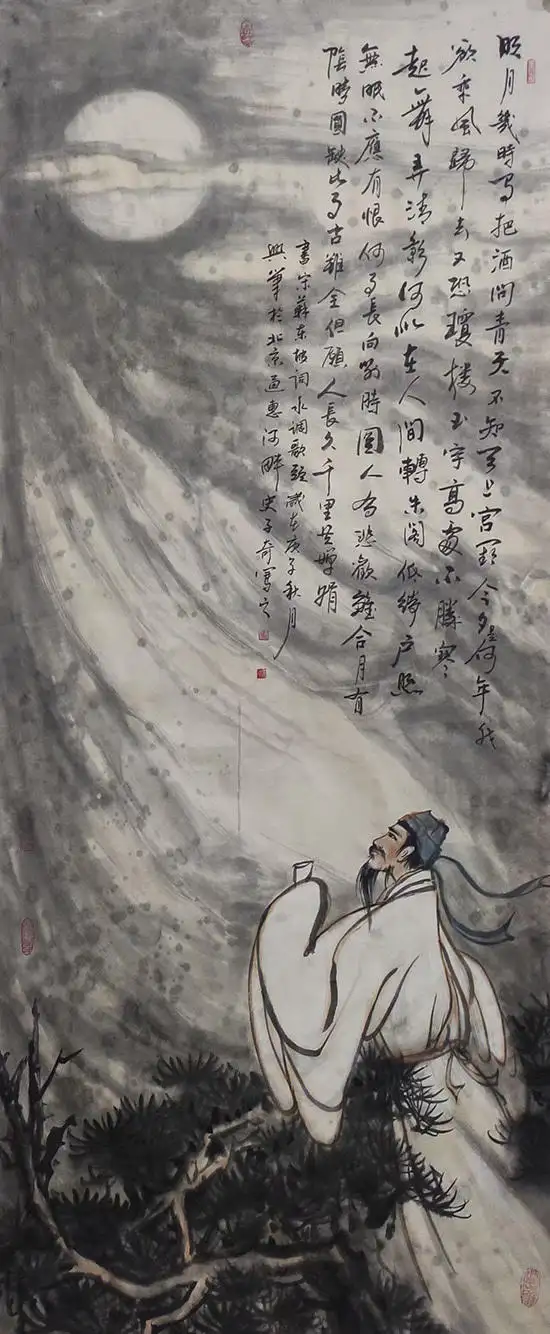 明月幾時有把酒問青天不知天上宮闕今夕是何年我
欲乘風歸去又恐瓊樓玉宇高處不勝寒
起舞弄清影何似在人間轉朱閣低綺户照
無眠不應有恨何事長向別時圓人有悲歡離合月有
陰晴圓缺此事古難全但願人長久千里共嬋娟
書宋蘇東坡詞水调歌頭歲在庚子秋月
興筆於北京通惠河畔史子奇寫之